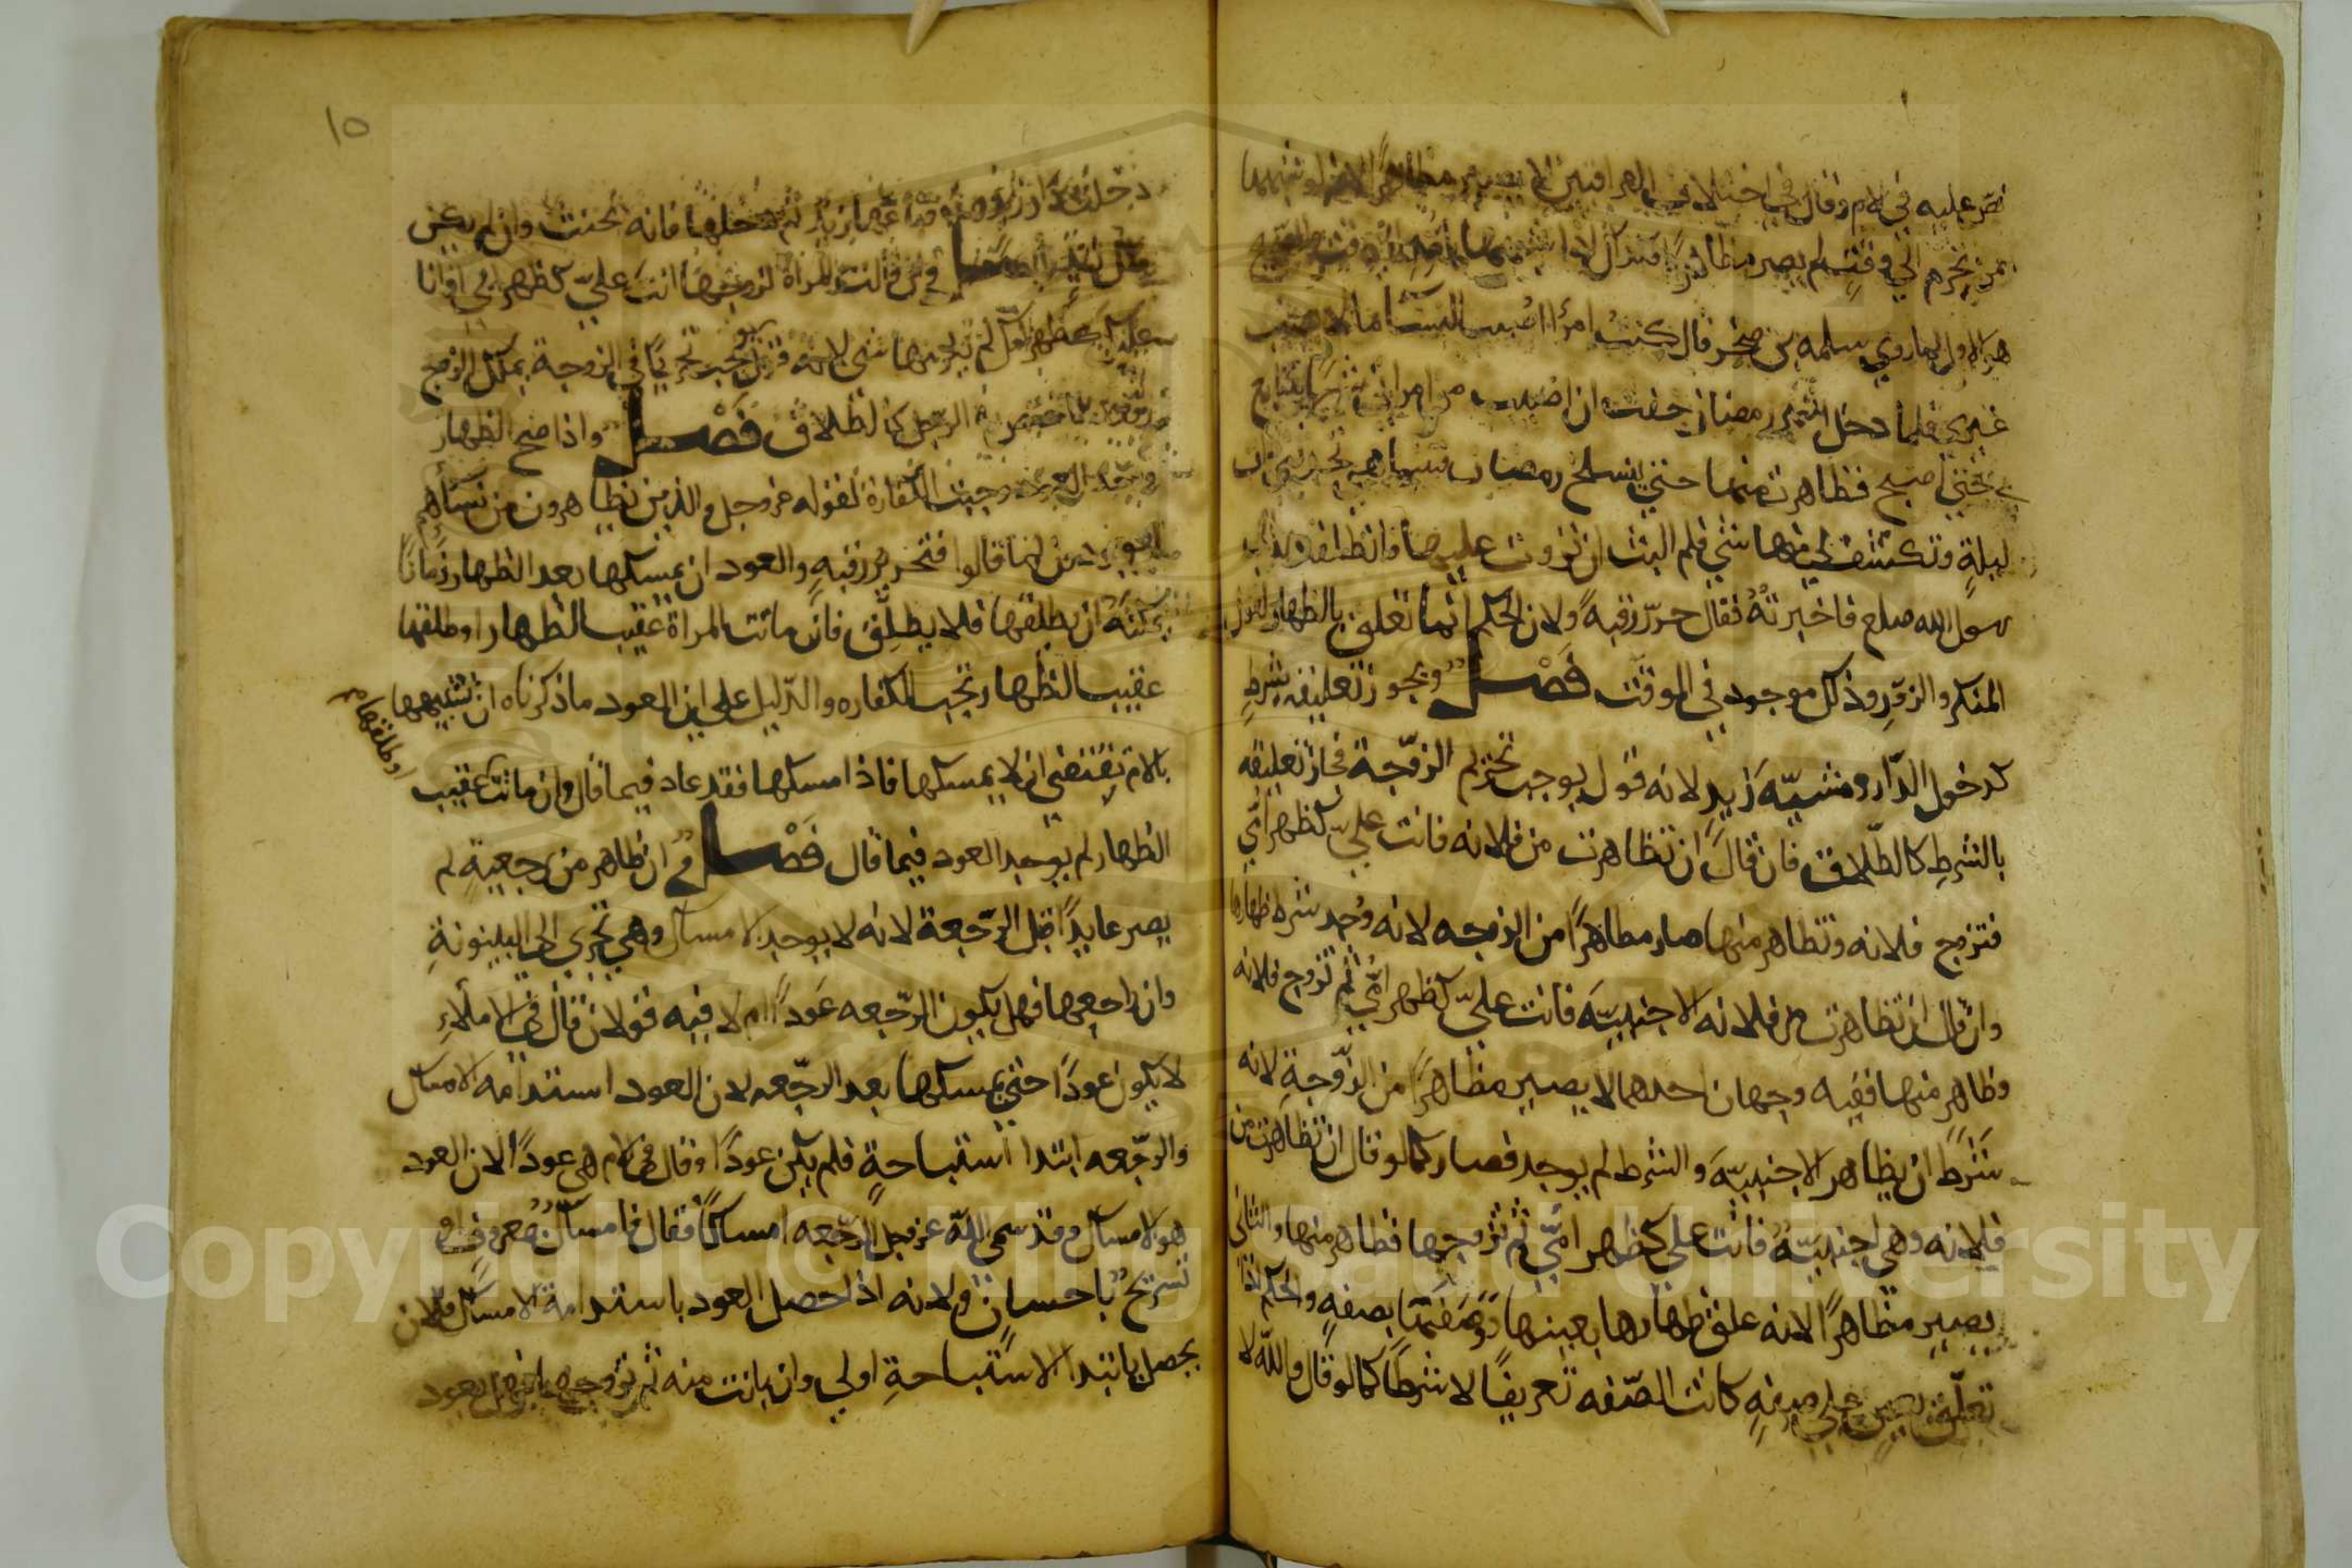 نص عليه في الام وقال في اختلاف العراقيين لا يصير مظاهرًا لانه لو شبهها
بمن تحرم الي وقتٍ لم يصر مظاهرًا فكذلك اذا شبهها بامه الي وقت والصحيح
هو الاول لما روي سلمه بن صخر قال كنت امرأ اصيب من النسا ما لا يصيب
غيري فلما دخل شهر رمضان خفت ان اصيب من امراتي شيًا يتتابع
بي حتي اصبح فظاهرت منها حتي ينسلخ رمضان فبينما هي تخدمني ذات
ليلةٍ وتكشف لي منها شي فلم البث ان نزوت عليها فانطلقت الي
رسول الله صلعم فاخبرته فقال حرّر رقبه ولان الحكم انما تعلق بالظهار لقوله
المنكر والزور وذلك موجود في الموقت فَصْل ويجوز تعليقه بشرطٍ
كدخول الدّار ومشيّه زيدٍ لانه قول يوجب تحريم الزوّجة فجاز تعليقه
بالشرطِ كالطّلاق فان قال ان تظاهرت من فلانه فانت علي كظهر امّي
فتزوج فلانه وتظاهر منها صار مظاهرًا من الزوجه لانه وُجد شرط ظهارها
وان قال ان تظاهرت من فلانه الاجنبيّه فانت عليّ كظهر امّي ثم تزوج فلانه
وظاهر منها ففيه وجهان احدهما لا يصير مظاهرًا من الزّوجةِ لانه
شَرَط ان يظاهر الاجنبيّه والشرط لم يوجد فصار كما لو قال ان تظاهرت من
فلانه وهي اجنبيّهٌ فانت علي كظهر امّي ثم تزوجها فظاهر منها والثاني
يصير مظاهرًا لانه علق ظهارها بعينها ووصفها بصفهٍ والحكم اذا
تعلّق بعينٍ علي صفهٍ كانت الصّفه تعريفًا لا شرطًا كما لو قال والله لا
١٥
دخلت دار زيد هذه فباعها زيد ثم دخلها فانه يحنث وان لم يكن
ملك زيد فَصْل في ان قالت المراة لزوجها انت عليّ كظهر ابي او انا
عليك كظهر امك لم يلزمها شي لانه قول يوجب تحريمًا في الزوجة يملك الزوج
رفعه فاختص به الرجل كالطلاق فَصْل واذا صح الظهار
ووجد العود وجبت الكفارة لقوله عز وجل والذين يظاهرون من نسائهم
ثم يعودون لما قالوا فتحرير رقبهٍ والعود ان يمسكها بعد الظهار زمانًا
يمكنه ان يطلقها فلا يطلّق فان ماتت المراة عقيب الظهار او طلقها
عقيب الظهار لم تجب الكفاره والدّليل علي ان العود ما ذكرناه ان تشبيهها
بالام يقتضي ان لا يمسكها فاذا امسكها فقد عاد فيما قال وان ماتت عقيب
او طلقها
الظهار لم يوجد العود فيما قال فَصْل في ان ظاهر من رجعيةٍ لم
يصر عايدًا قبل الرّجعة لانه لا يوجد الامساك وهي تجري الي البينونةِ
وان راجعها فهل يكون الرّجعه عَودًا ام لا فيه قولان قال في الاملاءِ
لا يكون عودًا حتي يمسكها بعد الرجّعه لان العود استدامه الامساك
والرجّعه ابتدا استباحةٍ فلم يكن عودًا وقال في الام هي عودًا لان العود
هو الامساك وقد سمي اللّه عز وجل الرّجعه امساكًا فقال فامساكٌ بمعروفٍ او
تسريحٌ باحسانٍ ولانه اذا حصل العود باستدامة الامساك فلان
يحصل بابتدا الاستباحةِ اولي وان بانت منه ثم تزوجها فهل يعود